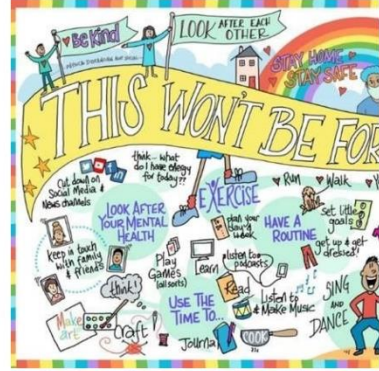 ♥ Be Kind
LOOK AFTER EACH
OTHER
STAY HOME
STAY SAFE
THIS WON'T BE FOR
Cut down on
Social Media &
News channels
think... what
do I have energy
for today??
EXERCISE
♥ Run ♥ Walk
LOOK AFTER
YOUR MENTAL
HEALTH
plan your
day &
week
HAVE A
ROUTINE
Set little
goals
get up & get
dressed!
keep in touch
with family
& friends
Play
Games
(all sorts)
Learn
listen to
podcasts
think!
USE THE
TIME TO...
Read
Listen to
& Make Music
SING
AND
DANCE
Make
art
Craft
Journal
COOK